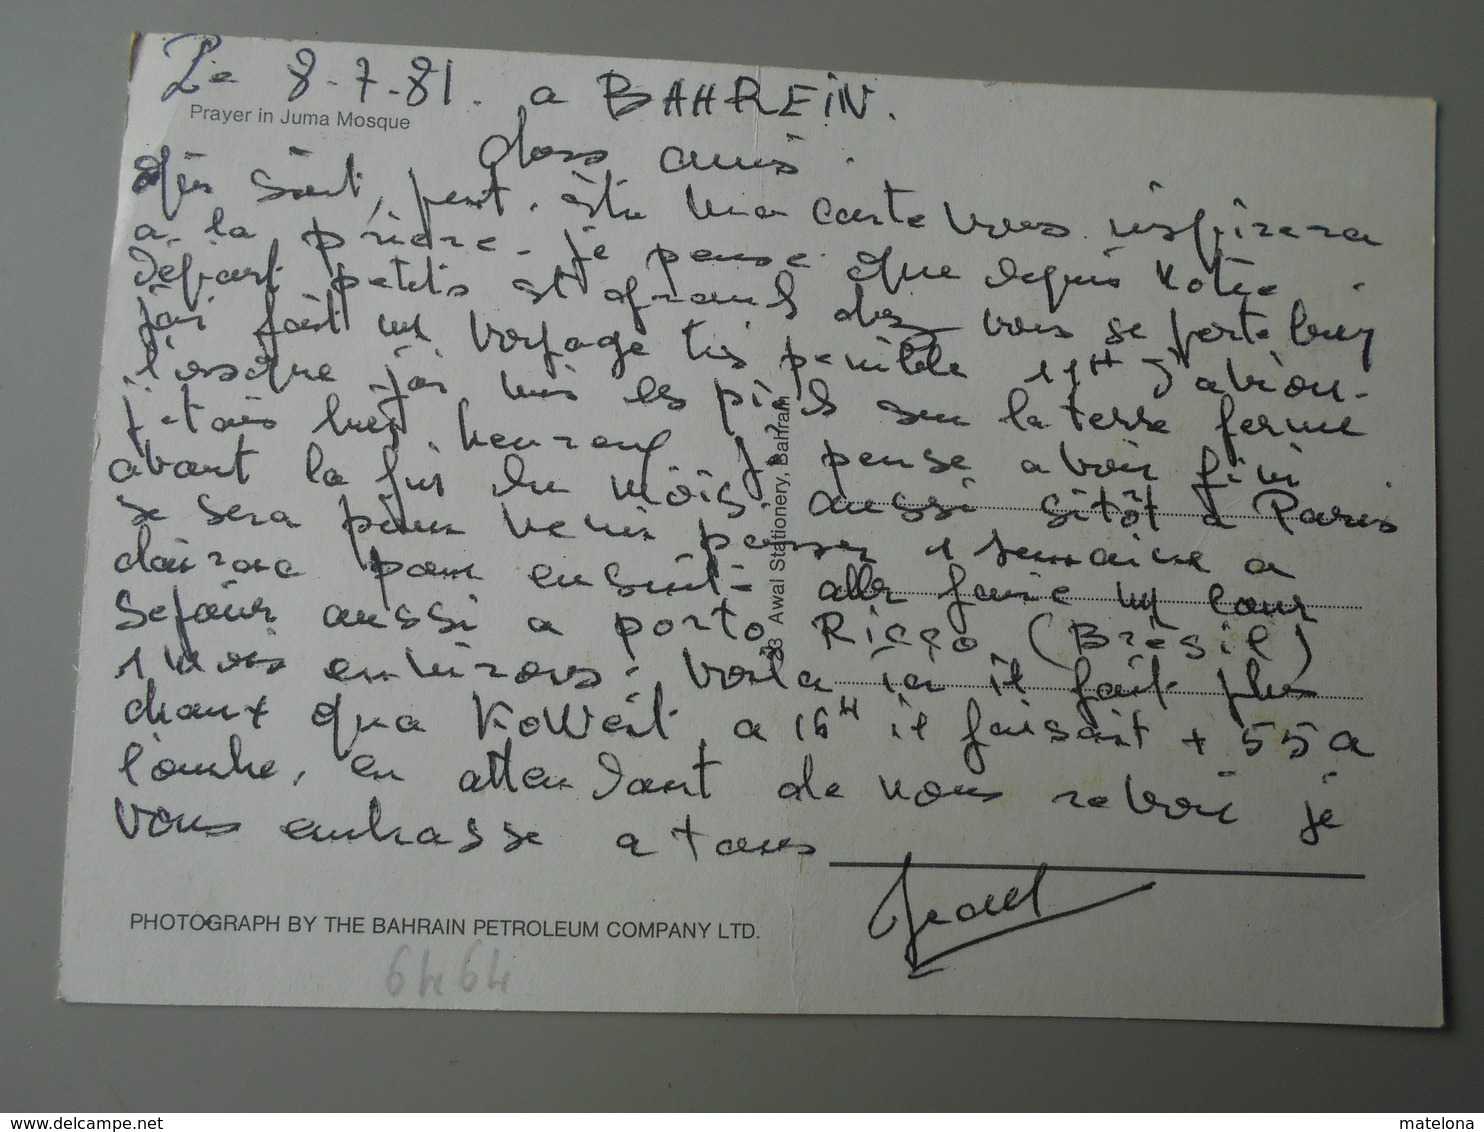 Le 8-7-81. a BAHREIN.
Prayer in Juma Mosque
chers amis.
Qui sait, peut-être ma carte vous inspirera
a la prière. je pense que depuis notre
départ petits et grands chez vous se porte bien
j'ai fait un voyage très penible 11H d'avion.
lorsque j'ai mis les pieds sur la terre ferme
j'etais bien heureux je pense avoir fini
avant la fin du mois. aussi sitôt a Paris
se sera pour venir passer 1 semaine a
clairac pour ensuite aller faire un cour
sejour aussi a porto Ricco (Brésil)
1 mois environs. voila ici il fait plus
chaux qua KoWeit, a 16H il faisait + 55 a
l'ombre, en attendant de vous revoir je
vous embrasse a tous
Awal Stationery, Bahrain
PHOTOGRAPH BY THE BAHRAIN PETROLEUM COMPANY LTD.
6464
https://www.delcampe.net
matelona